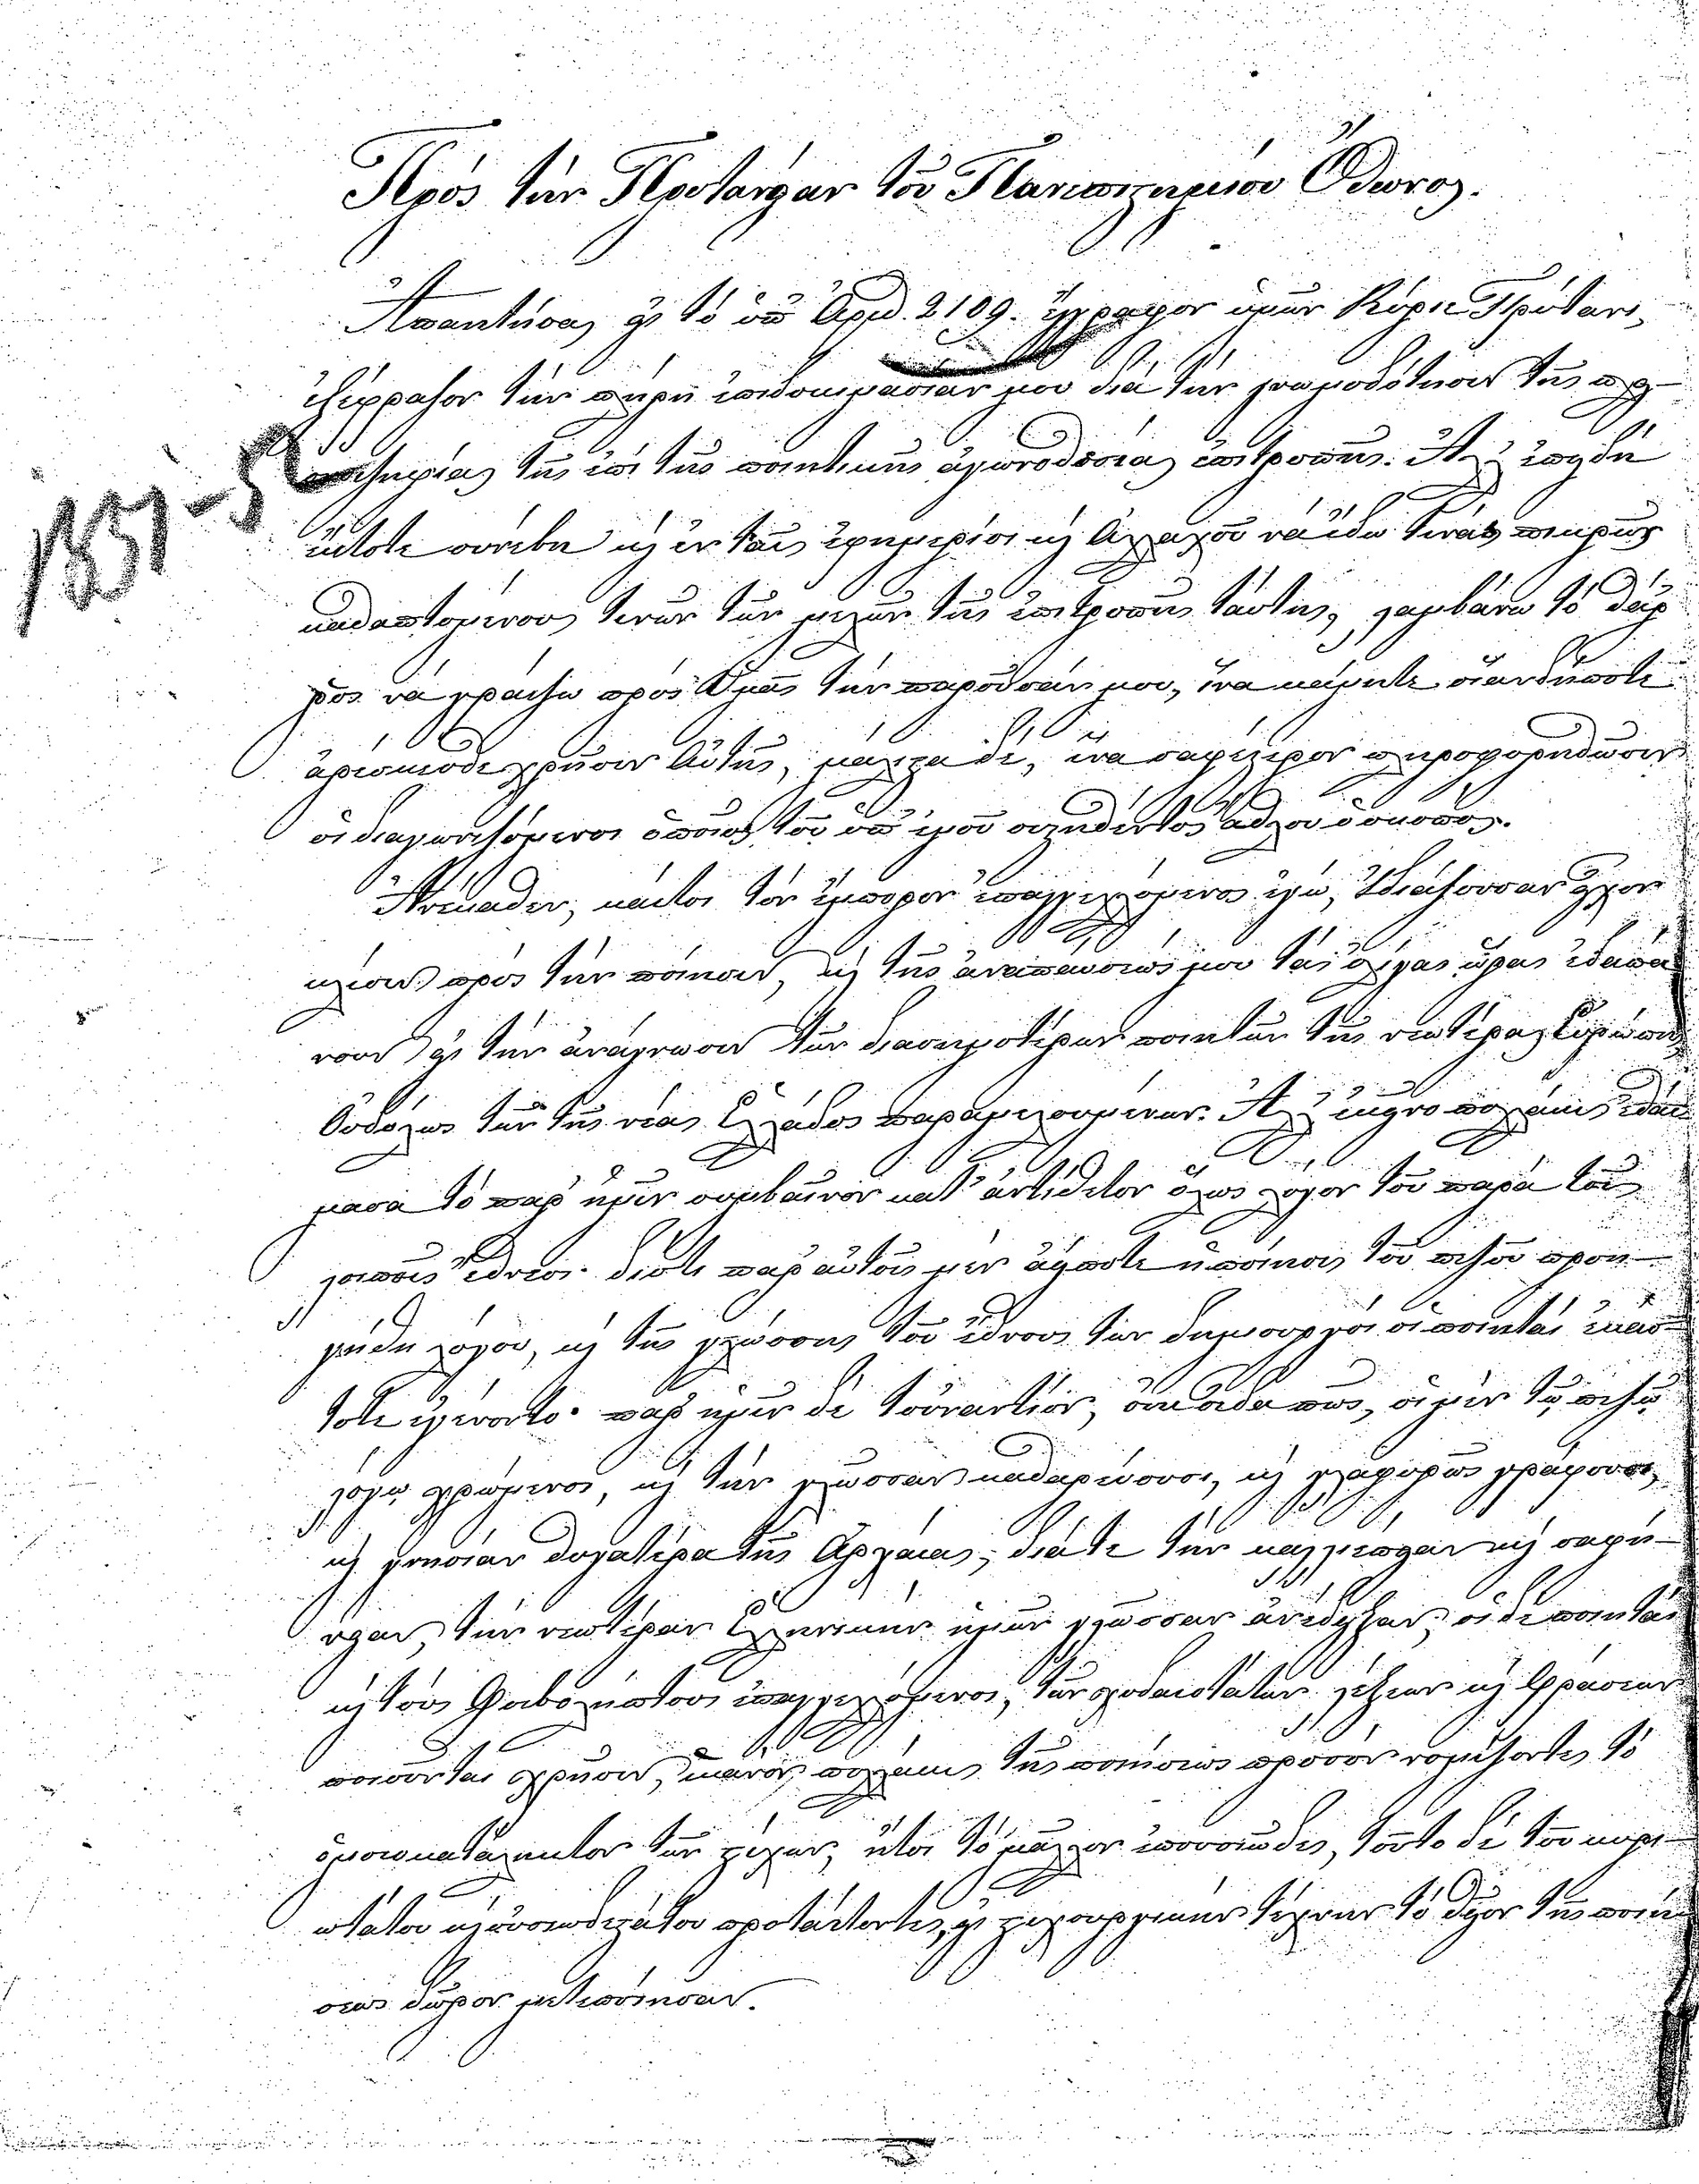 Πρὸς τὴν Πρυτανείαν τοῦ Πανεπιστημίου Ὄθωνος.
Ἀπαντήσας εἰς τὸ ὑπ' Ἀριθ. 2109. ἔγγραφον ὑμῶν Κύριε Πρύτανι,
ἐξέφρασα τὴν πλήρη ἐπιδοκιμασίαν μου διὰ τὴν γνωμοδότησιν τῆς
τῆς ἐπὶ τῆς ποιητικῆς ἀγωνοθεσίας ἐπιτροπῆς. Ἀλλ' ἐπειδὴ
εἴτε συνέβη καὶ ἐν ταῖς ἐφημερίσι καὶ ἀλλαχοῦ νὰ ἴδω τινὰς πικρῶς
καθαπτομένους τινῶν τῶν μελῶν τῆς ἐπιτροπῆς ταύτης, λαμβάνω τὸ θάρ-
ρος νὰ γράψω πρὸς Ὑμᾶς τὴν παροῦσάν μου, ἵνα κάμητε
χρῆσιν αὐτῆς, μάλιστα δὲ, ἵνα σαφέστερον πληροφορηθῶσιν
οἱ διαγωνιζόμενοι ὁποῖος τοῦ ὑπ' ἐμοῦ τεθέντος ἄθλου ὁ σκοπός.
Ἀνέκαθεν, καίτοι τὸν ἔμπορον ἐπαγγελλόμενος ἐγώ, ἰδιάζουσαν ἔχων
κλίσιν πρὸς τὴν ποίησιν, καὶ τῆς ἀναπαύσεώς μου τὰς ὀλίγας ὥρας ἐδαπά-
νουν εἰς τὴν ἀνάγνωσιν τῶν διασημοτέρων ποιητῶν τῆς νεωτέρας Εὐρώπης
τῶν τῆς νέας Ἑλλάδος παραμελουμένων. Ἀλλ' πολλάκις ἐθαύ-
μασα τὸ παρ' ἡμῖν συμβαῖνον κατ' ἀντίθετον ὅλως λόγον τοῦ παρὰ τοῖς
λοιποῖς ἔθνεσι· διότι παρ' αὐτοῖς μὲν ἀείποτε ἡ ποίησις τοῦ πεζοῦ προη-
γήθη λόγου, καὶ τῆς γλώσσης τοῦ ἔθνους τῶν δημιουργοὶ οἱ ποιηταὶ ἑκάσ-
τοτε ἐγένοντο· παρ' ἡμῖν δὲ τοὐναντίον, οἱ μὲν τῷ πεζῷ
λόγῳ χρώμενοι, καὶ τὴν γλῶσσαν καθαρίζουσι, καὶ γλαφυρῶς γράφουσι,
καὶ γνησίαν θυγατέρα τῆς Ἀρχαίας, διά τε τὴν καλλιέπειαν καὶ σαφή-
νειαν, τὴν νεωτέραν Ἑλληνικὴν ἡμῶν γλῶσσαν ἀνέδειξαν, οἱ δὲ ποιηταὶ
καὶ τοὺς Φοιβολήπτους ἐπαγγελλόμενοι, τῶν χυδαιοτάτων λέξεων καὶ φράσεων
ποιοῦνται χρῆσιν, ἱκανὸν πολλάκις τῆς ποιήσεως προσὸν νομίζοντες τὸ
ὁμοιοκατάληκτον τῶν λέξεων, ἤτοι τὸ μᾶλλον ἐπουσιῶδες, τοῦτο δὲ τοῦ κυρι-
ωτάτου καὶ οὐσιωδεστάτου προτάττοντες, εἰς τέχνην τὸ θεῖον τῆς ποιή-
σεως δῶρον μετεποίησαν.